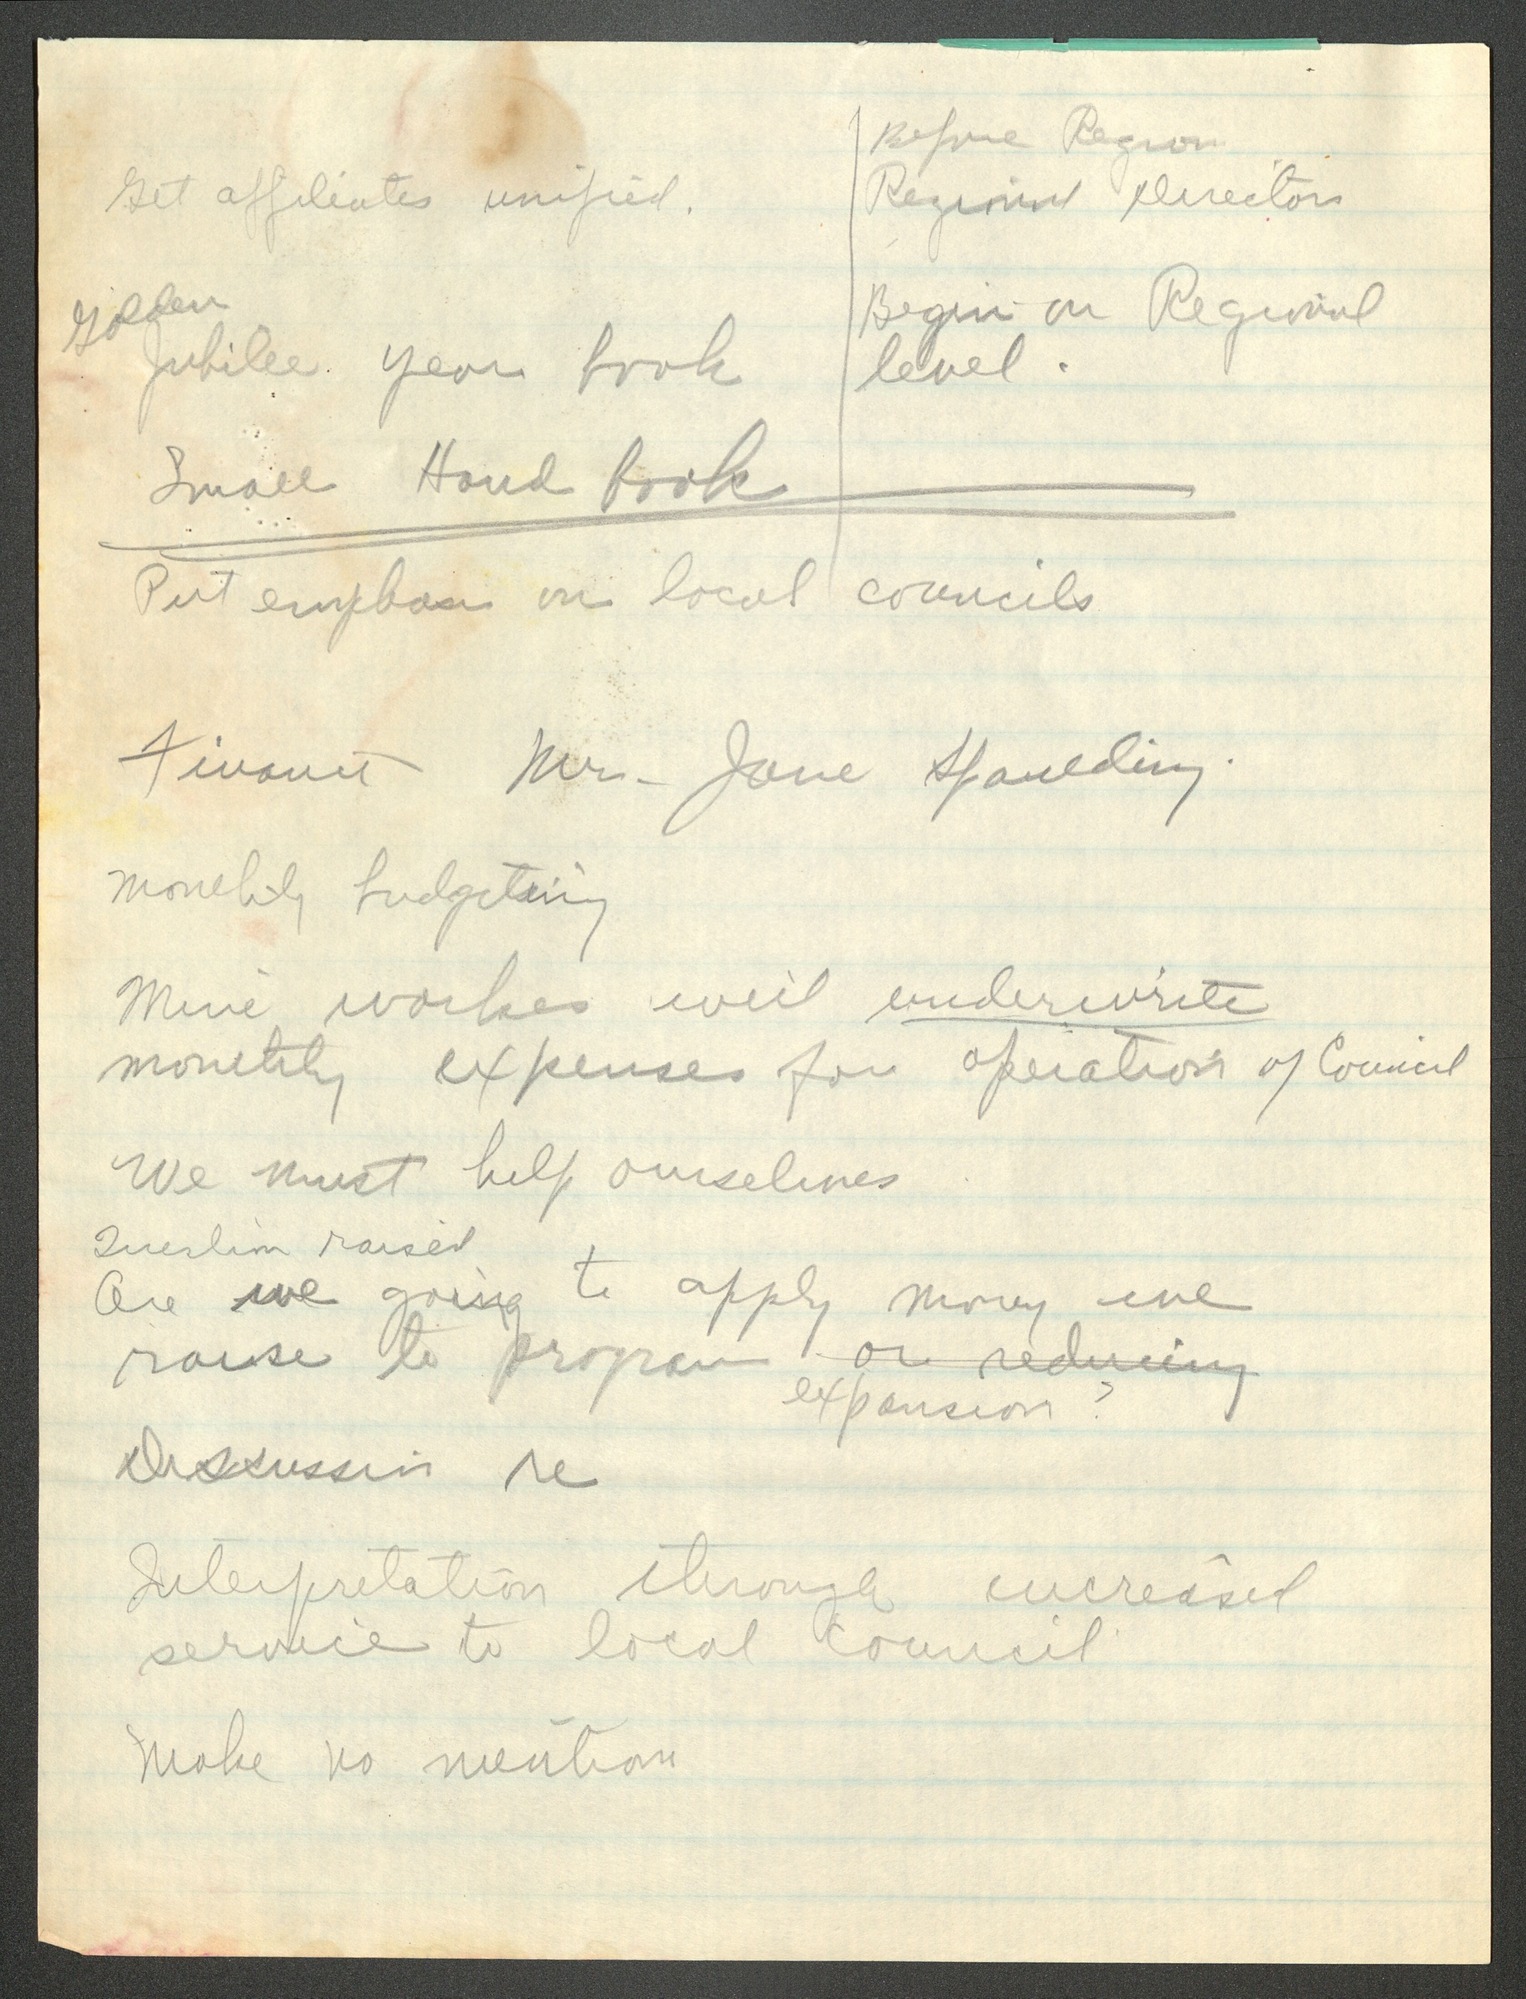 Get affiliates unified.
Before Region
Regional Directors
Begin on Regional
level.
Golden
Jubilee year book
Small Hand book
Put emphasis on local councils
Finance Mrs. Jane Spaulding.
monthly budgeting
Mine workers will underwrite
monthly expenses for operation of Council
We must help ourselves
Question raised
Are we going to apply money we
raise to program or reducing
expansion?
Discussion re
Interpretation through increased
service to local council
Make no mention